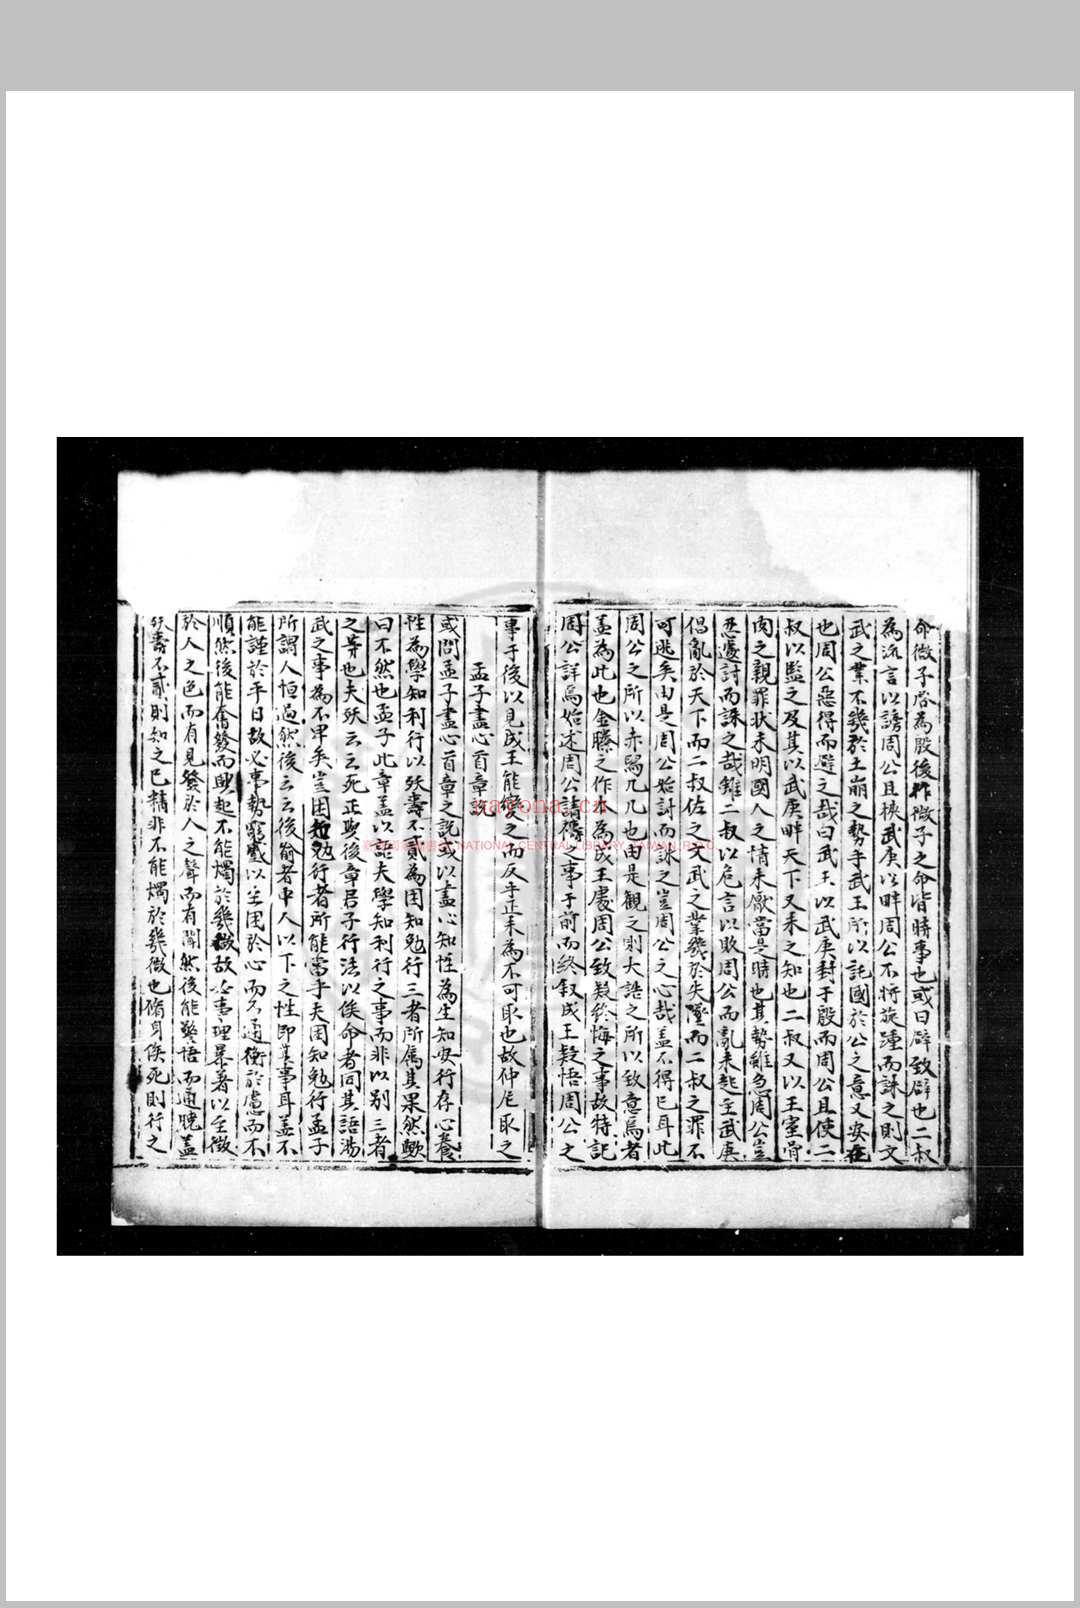 命微子啓為殷後作微子之命皆時事也或曰辟致辟也二叔
為流言以謗周公且挾武庚以畔周公不將旋踵而誅之則文
武之業不幾於土崩之勢乎武王所以託國於公之意又安在
也周公惡得而避之哉曰武王以武庚封于殷而周公且使二
叔以監之及其以武庚畔天下又未之知也二叔又以王室骨
肉之親罪狀未明國人之情未厭當是時也其勢雖急周公豈
忍遽討而誅之哉雖二叔以危言以敗周公而亂未起至武庚
倡亂於天下而二叔佐之文武之業幾於失墜而二叔之罪不
可逃矣由是周公始討而誅之豈周公之心哉盖不得已耳此
周公之所以赤舄几几也由是觀之則大誥之所以致意焉者
盖為此也金縢之作本為成王處周公致疑終悔之事故特記
周公詳焉始述周公請禱之事于前而終叙成王疑悟周公之
事于後以見成王能變之而反乎正未為不可取也故仲尼取之
孟子盡心首章說
或問孟子盡心首章之說或以盡心知性為生知安行存心養
性為學知利行以殀壽不貳為困知勉行三者所屬其果然歟
曰不然也孟子此章盖以語夫學知利行之事而非以别三者
之等也夫殀云云死正與後章君子行法以俟命者同其語湯
武之事為不甲矣豈困知勉行者所能當乎夫困知勉行孟子
所謂人恒過然後云云後喻者中人以下之性即其事耳盖不
能謹於平日故必事勢窮蹙以至困於心而不通衡於慮而不
順然後能奮發而興起不能燭於幾微故必事理暴著以至徵
於人之色而有見發於人之聲而有聞然後能警悟而通曉盖
殀壽不貳則知之已精非不能燭於幾微也脩身俟死則行之
nayona.cn
NATIONAL CENTRAL LIBRARY, TAIWAN, R.O.C.